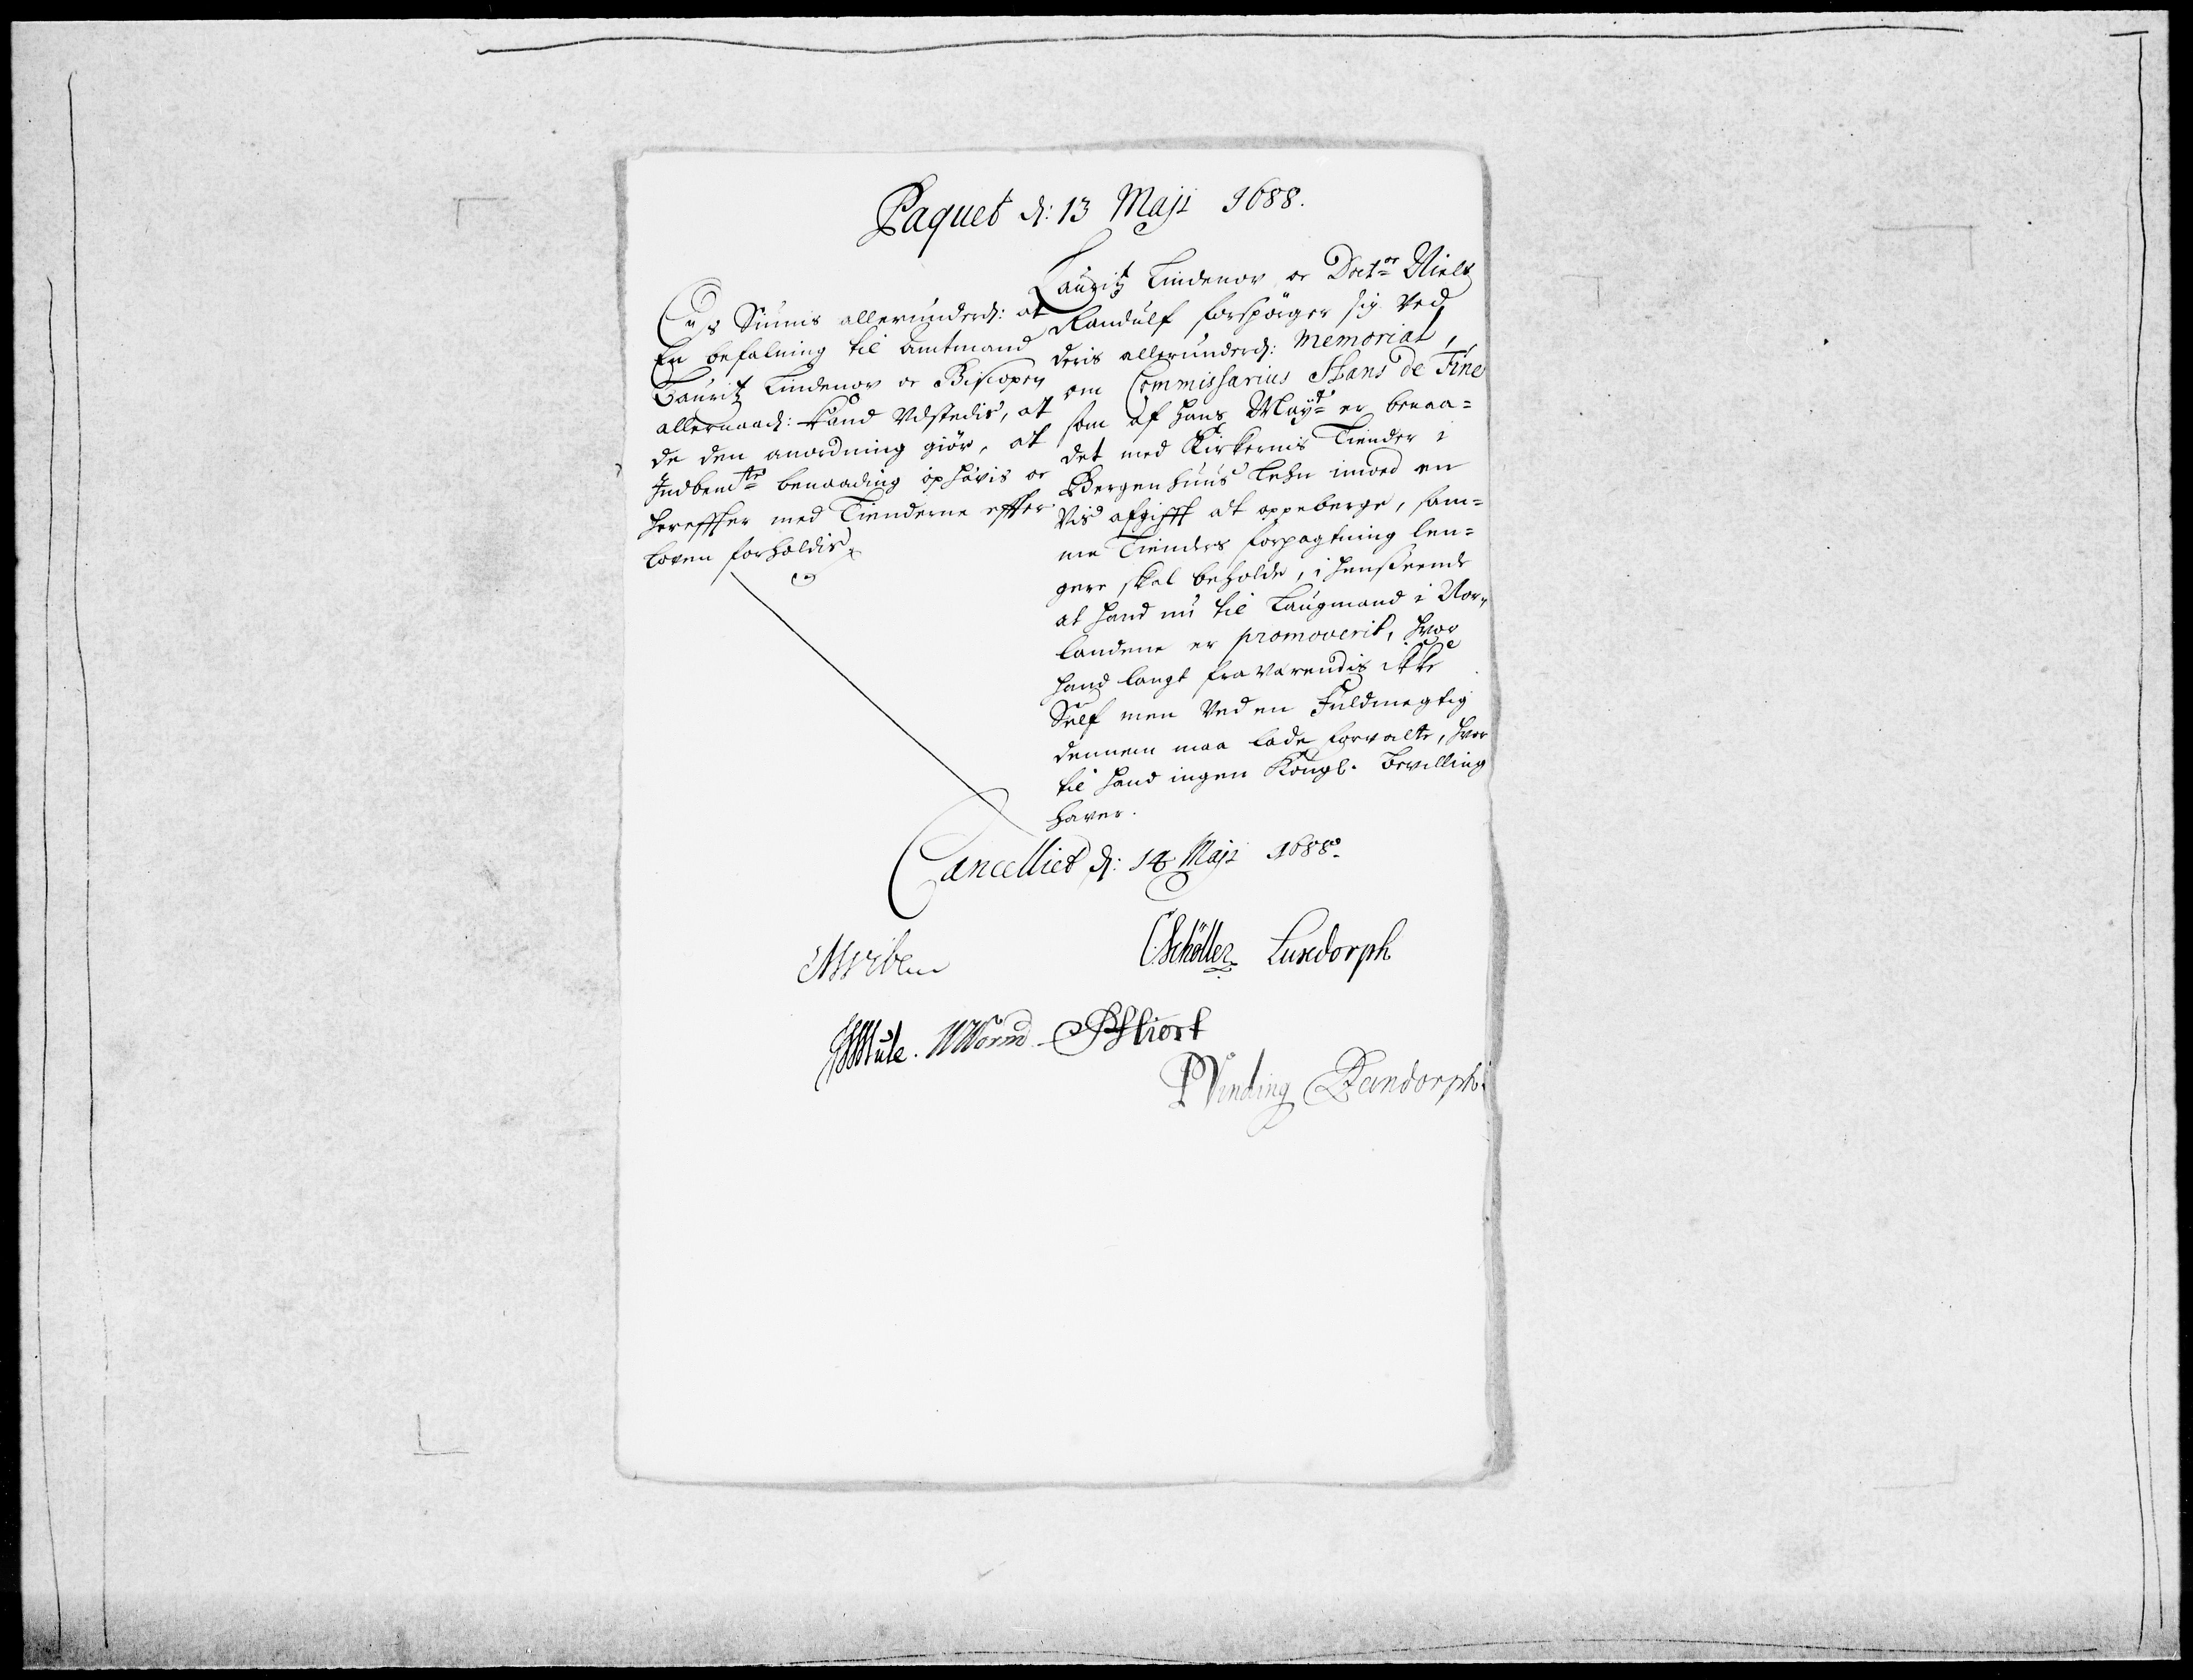 Paquet d: 13 Maji 1688.
Lauritz Lindenov oc Doctor Niels
Randulf forspörger sig ved
deris allerunderd: Memorial,
om Commissarius Hans de Fine
som af hans Mayts er benaa=
det med Kirkernis Tiender i
Bergenhuus Lehn imod en
vis afgifft at oppeberge, sam=
me Tienders forpagtning len=
gere skal beholde, i henseende
at hand nu til Laugmand i Nor=
landene er promoverit, hvor
hand langt fraværendis ikke
Self men ved en Fuldmegtig
dennem maa lade forvalte, hvor
til hand ingen Kongl. Bevilling
haver.
Os Siunis allerunderd: at
En befalning til Amtmand
Lauritz Lindenov oc Biscopen
allernaad: kand Udstedis, at
de den anordning giör, at
Indbemte benaading ophævis oc
hereffter med Tienderne effter
Loven forholdis
Cancelliet d: 14 Maji 1688.
MWiben
CSchöller Luxdorph
Mule. WWorm PHiort
PVinding Reindorph